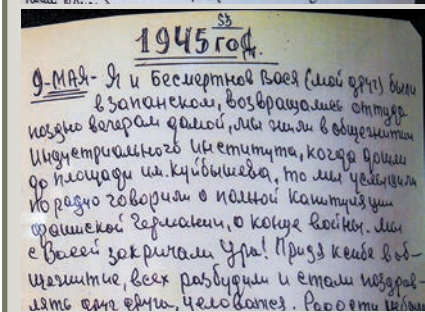 53
1945 год.
9-МАЯ- Я и Бесмертнов Вася (мой друг) были
в Запанском, возвращались оттуда
поздно вечерам дамой, мы жили в общежитии
Индустриального института, когда дошли
до площади им. Куйбышева, то мы услышали
по радио говорили о полной капитуляции
фашиской Германии, о конце войны. Мы
с Васей закричали Ура! Придя к себе в об-
щежитие, всех разбудили и стали поздрав-
лять друг друга, целоватся. Радости